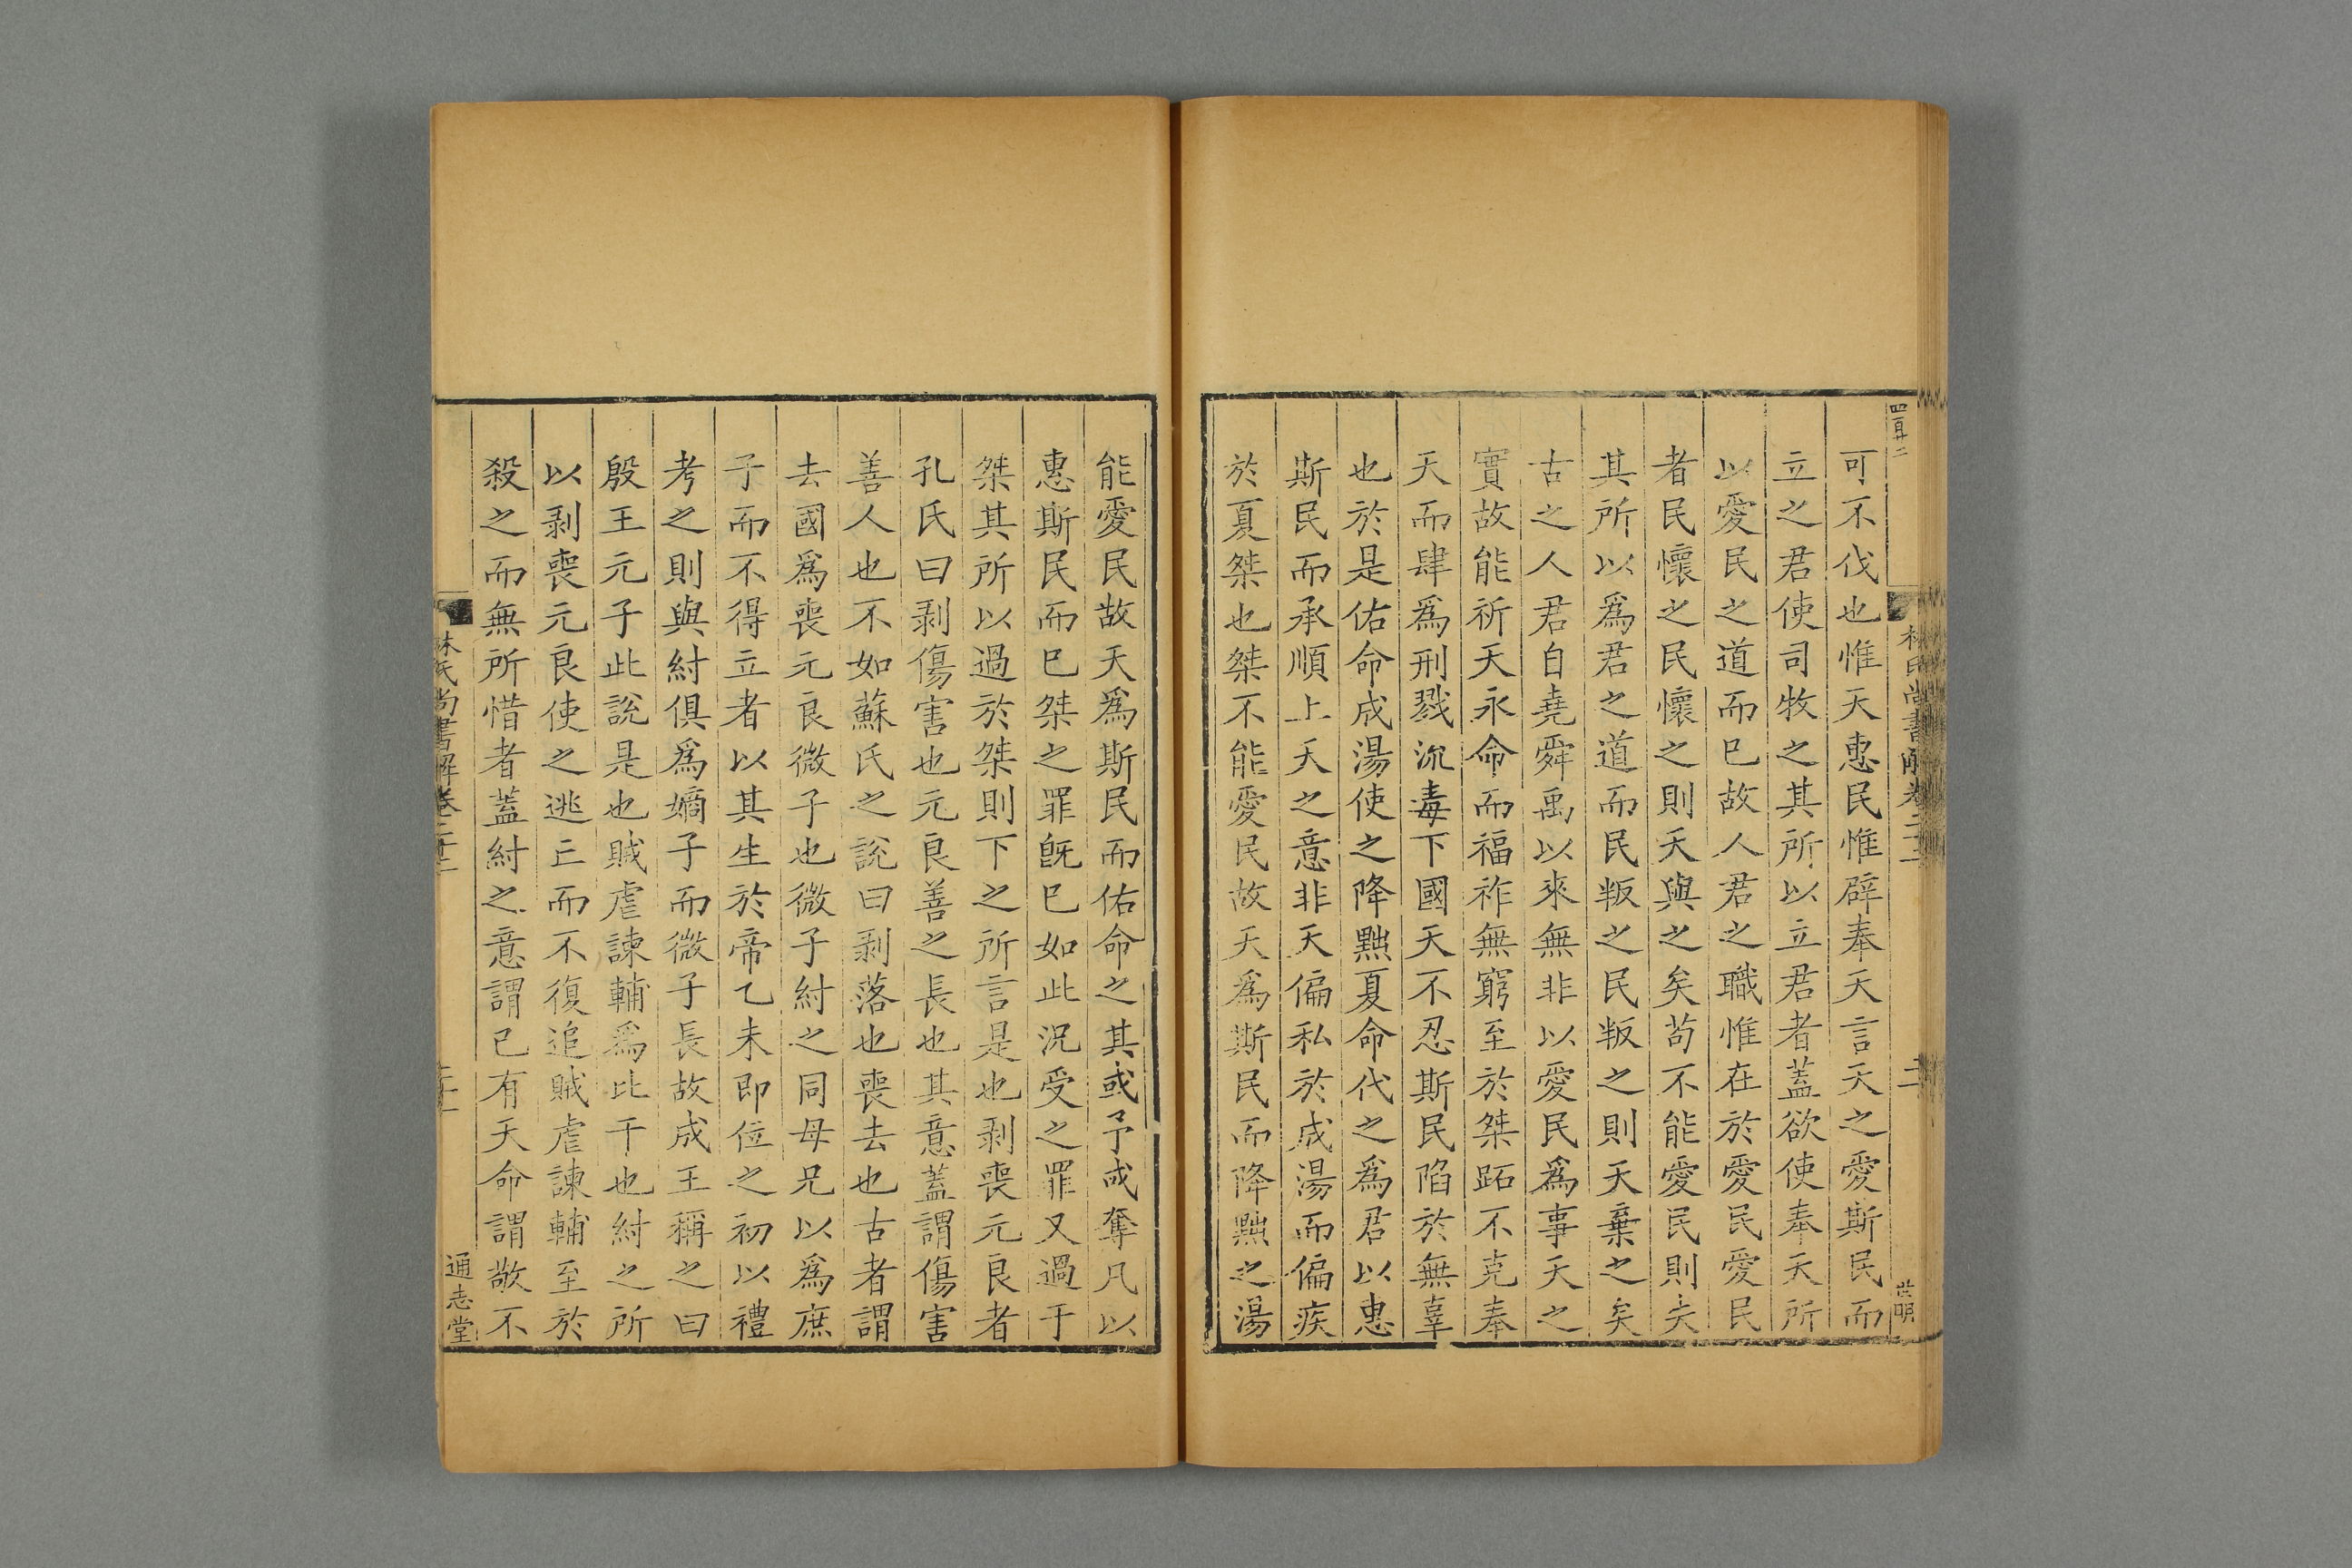 可不伐也惟天惠民惟辟奉天言天之愛斯民而
立之君使司牧之其所以立君者蓋欲使奉天所
以愛民之道而已故人君之職惟在於愛民愛民
者民懷之民懷之則天與之矣茍不能愛民則失
其所以爲君之道而民叛之民叛之則天棄之矣
古之人君自堯舜禹以來無非以愛民爲事天之
實故能祈天永命而福祚無窮至於桀跖不克奉
天而肆爲刑戮沉毒下國天不忍斯民陷於無辜
也於是佑命成湯使之降黜夏命代之爲君以惠
斯民而承順上天之意非天偏私於成湯而偏疾
於夏桀也桀不能愛民故天爲斯民而降黜之湯
能愛民故天爲斯民而佑命之其或予或奪凡以
惠斯民而已桀之罪旣已如此況受之罪又過于
桀其所以過於桀則下之所言是也剥喪元良者
孔氏曰剥傷害也元良善之長也其意蓋謂傷害
善人也不如蘇氏之說曰剥落也喪去也古者謂
去國爲喪元良微子也微子紂之同母兄以爲庶
子而不得立者以其生於帝乙未即位之初以禮
考之則與紂俱爲嫡子而微子長故成王稱之曰
殷王元子此說是也賊虐諫輔爲比干也紂之所
以剥喪元良使之逃亡而不復追賊虐諫輔至於
殺之而無所惜者蓋紂之意謂已有天命謂敬不
林氏尚書解卷二十二
通志堂